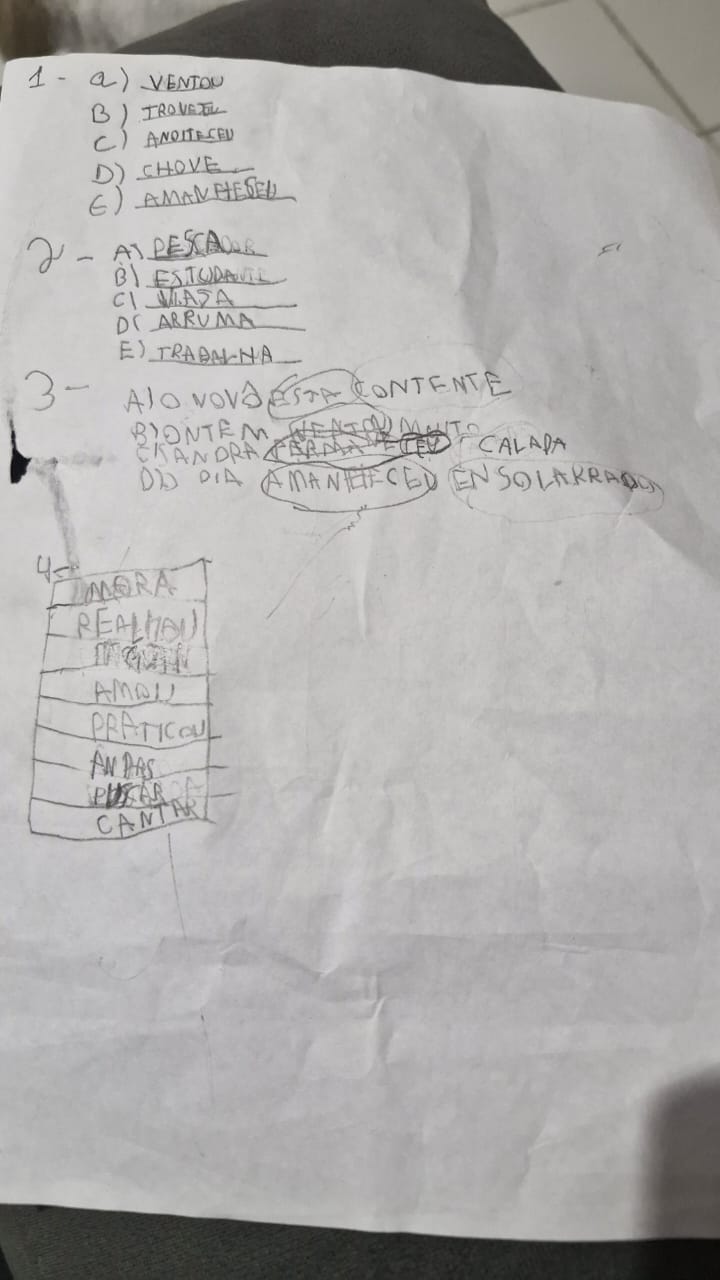 1 - a) VENTOU
B) TROVEJOU
C) ANOITECEU
D) CHOVE
E) AMANHESEU
2 - A) PESCADOR
B) ESTUDANTE
C) VIAJA
D) ARRUMA
E) TRABALHA
3 - A) O VOVÔ ESTA CONTENTE
B) ONTEM VENTOU MUITO
C) SANDRA CALADA
D) O DIA AMANHECEU ENSOLARRADO
4-
MORA
REALIZOU
AMOU
PRATICOU
ANDAS
CANTAR